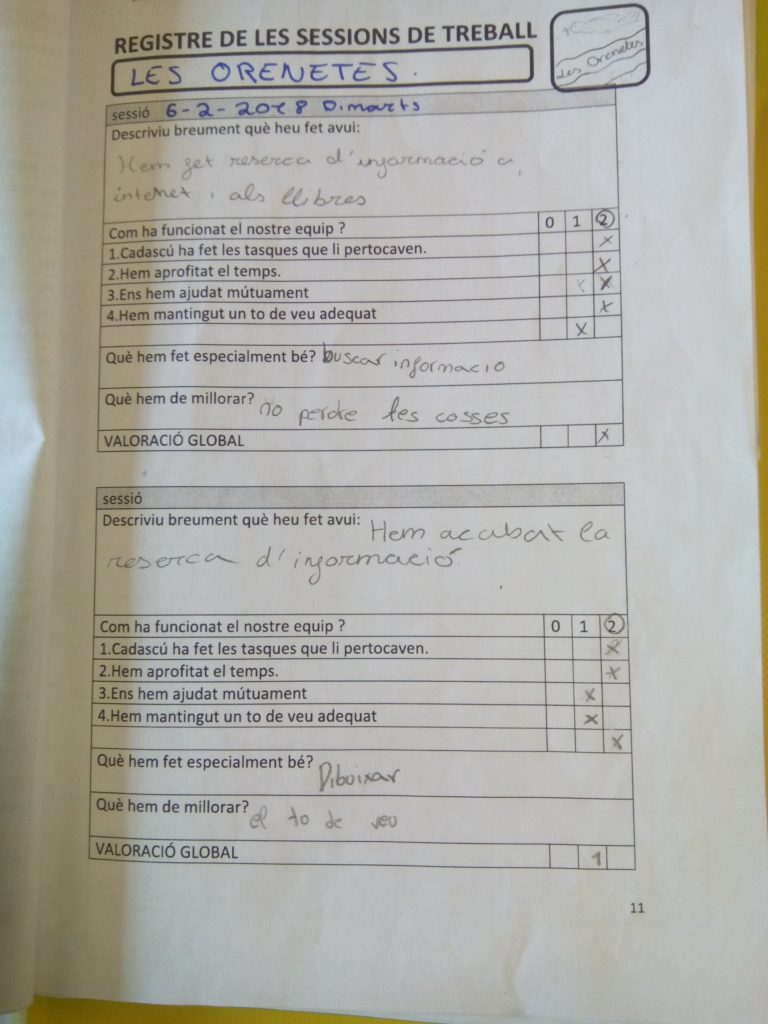 REGISTRE DE LES SESSIONS DE TREBALL
LES ORENETES.
Les Orenetes
sessió 6-2-2018 Dimarts
Descriviu breument què heu fet avui:
Hem fet reserca d'informació a
intenet i als llibres
Com ha funcionat el nostre equip ? 0 1 2
1.Cadascú ha fet les tasques que li pertocaven. x
2.Hem aprofitat el temps. x
3.Ens hem ajudat mútuament x x
4.Hem mantingut un to de veu adequat x
x
Què hem fet especialment bé? buscar informacio
Què hem de millorar? no perdre les cosses
VALORACIÓ GLOBAL x
sessió
Descriviu breument què heu fet avui: Hem acabat la
reserca d'informació
Com ha funcionat el nostre equip ? 0 1 2
1.Cadascú ha fet les tasques que li pertocaven. x
2.Hem aprofitat el temps. x
3.Ens hem ajudat mútuament x
4.Hem mantingut un to de veu adequat x
x
Què hem fet especialment bé? Dibuixar
Què hem de millorar? el to de veu
VALORACIÓ GLOBAL 1
11